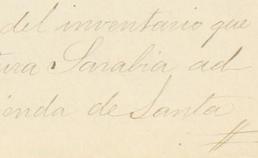 del inventario que
ura Sarabia, ad
ienda de Santa